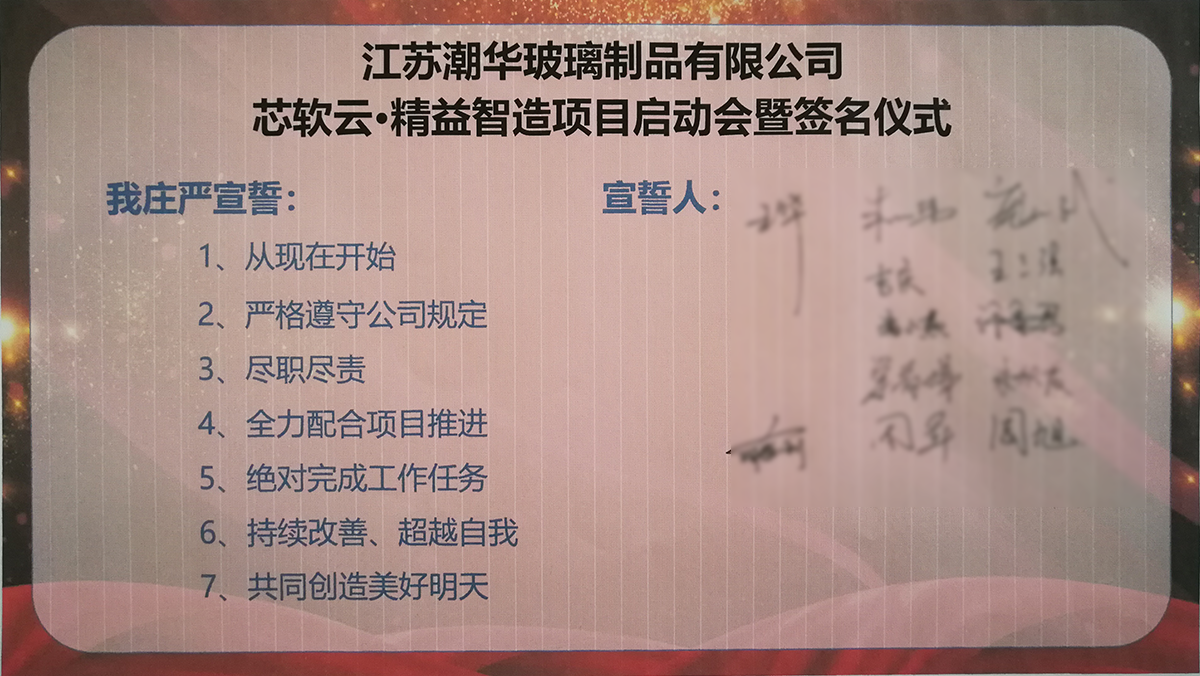 江苏潮华玻璃制品有限公司
芯软云·精益智造项目启动会暨签名仪式
我庄严宣誓：
1、从现在开始
2、严格遵守公司规定
3、尽职尽责
4、全力配合项目推进
5、绝对完成工作任务
6、持续改善、超越自我
7、共同创造美好明天
宣誓人：
周旭